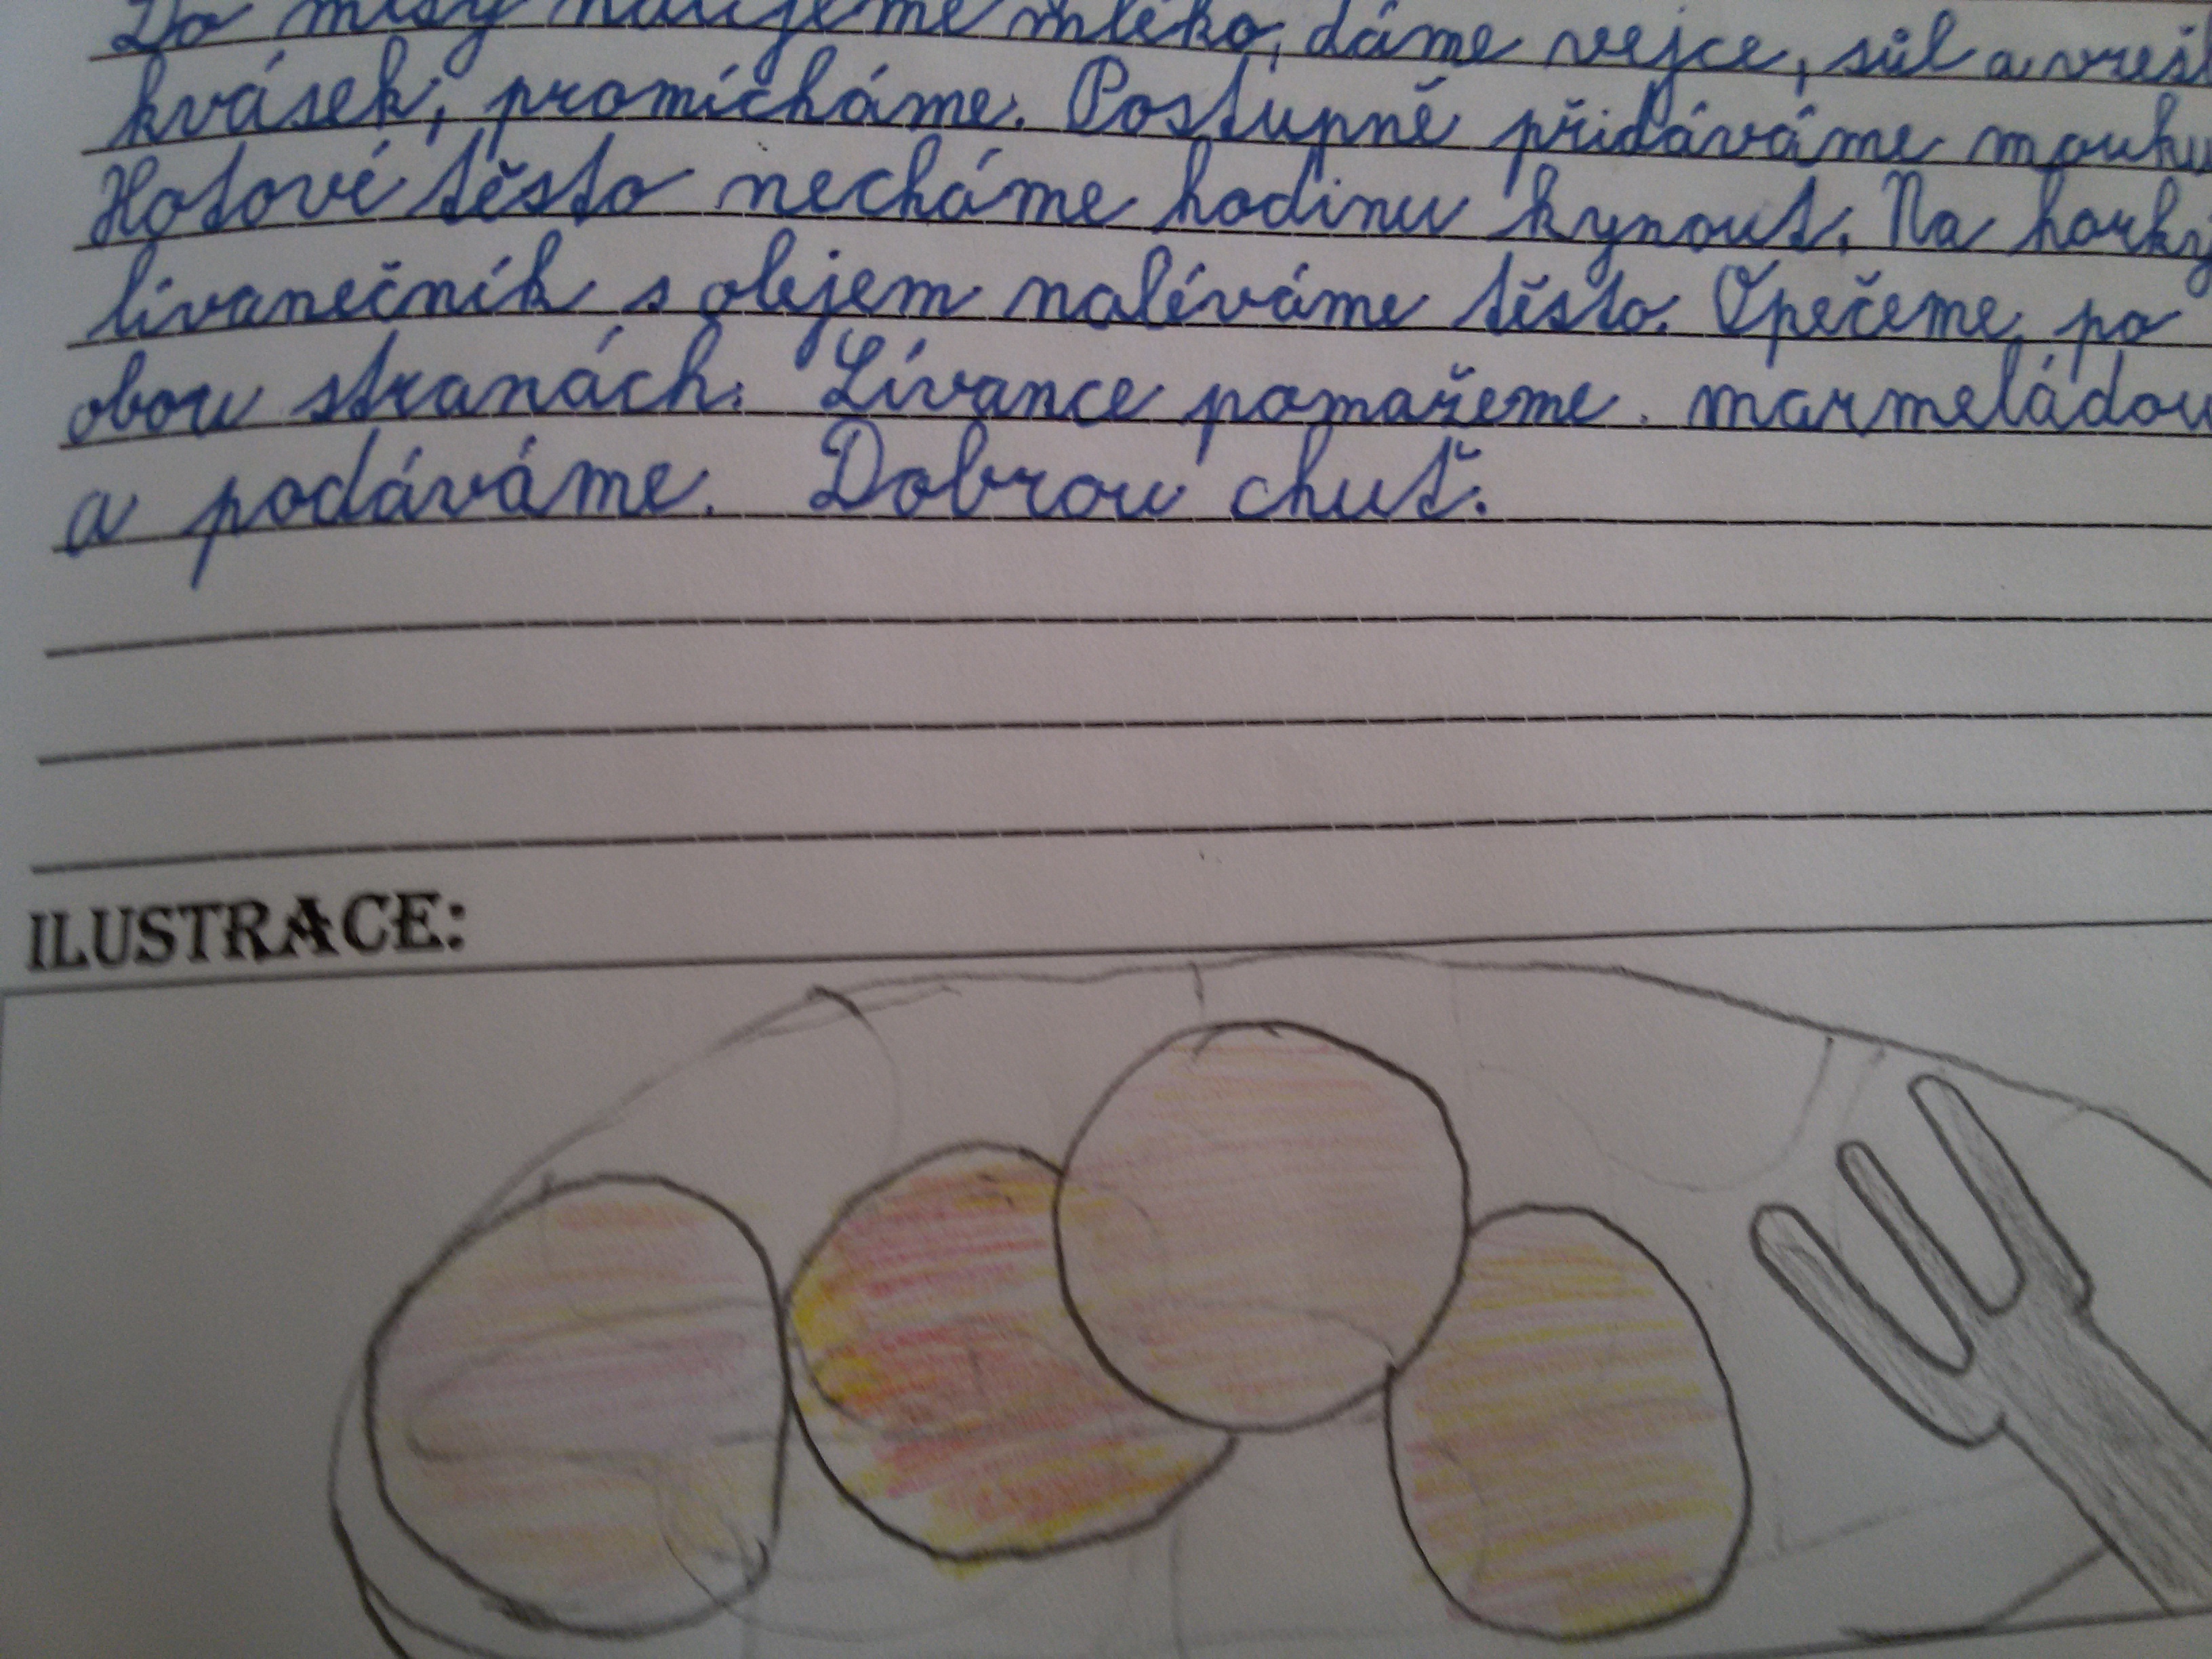 Do mísy nalijeme mléko, dáme vejce, sůl a
kvásek, promícháme. Postupně přidáváme mouku
Hotové těsto necháme hodinu kynout. Na horký
lívanečník s olejem naléváme těsto. Opečeme po
obou stranách. Lívance pomažeme marmeládou
a podáváme. Dobrou chuť.
ILUSTRACE: